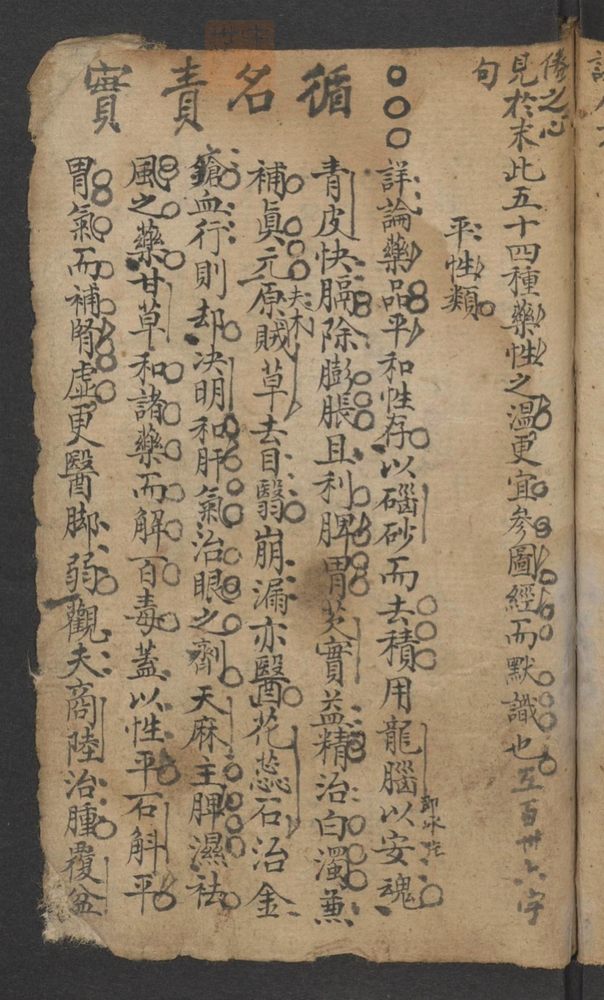 倦之心
見於末此五十四種藥性之溫更宜參圖經而默識也五百卅六字
句
平性類
循名責實
詳論藥品平和性存以碯砂而去積用龍腦以安魂
即冰片
青皮快膈除膨脹且利脾胃芡實益精治白濁兼
補真元原賊草去目翳崩漏亦醫花蕊石治金
夫木
鎗血行則却决明和肝氣治眼之劑天麻主脾濕祛
風之藥甘草和諸藥而解百毒蓋以性平石斛平
胃氣而補腎虛更醫脚弱觀夫商陸治腫覆盆